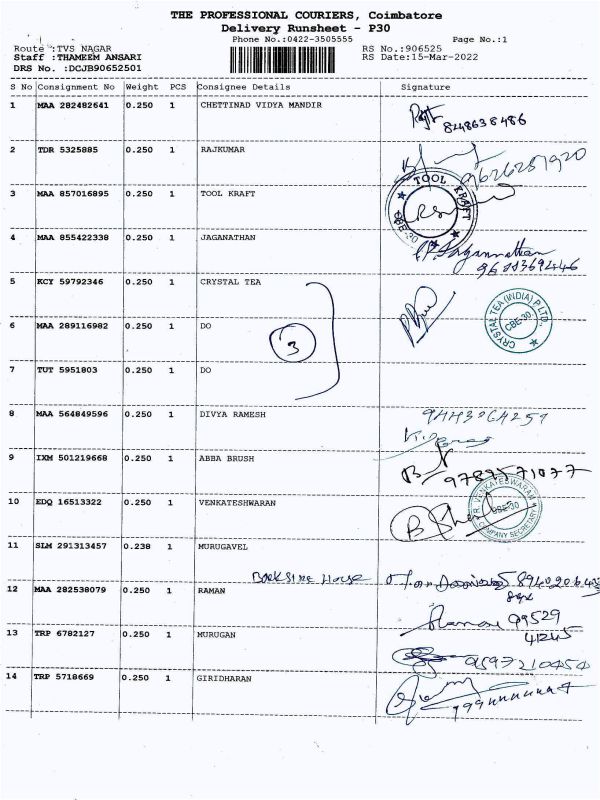 THE PROFESSIONAL COURIERS, Coimbatore
Delivery Runsheet - P30
Phone No.:0422-3505555 Page No.:1
Route :TVS NAGAR RS No.:906525
Staff :THAMEEM ANSARI RS Date:15-Mar-2022
DRS No. :DCJB90652501
S No Consignment No Weight PCS Consignee Details Signature
1 MAA 282482641 0.250 1 CHETTINAD VIDYA MANDIR
8248638486
2 TDR 5325885 0.250 1 RAJKUMAR
9626281920
3 MAA 857016895 0.250 1 TOOL KRAFT
TOOL KRAFT CBE-30
4 MAA 855422338 0.250 1 JAGANATHAN
5 KCY 59792346 0.250 1 CRYSTAL TEA
CRYSTAL TEA (INDIA) P.LTD. CBE-30
6 MAA 289116982 0.250 1 DO
3
7 TUT 5951803 0.250 1 DO
8 MAA 564849596 0.250 1 DIVYA RAMESH
9 IXM 501219668 0.250 1 ABBA BRUSH
10 EDQ 16513322 0.250 1 VENKATESHWARAN
R. VENKATESWARAN COMPANY SECRETARY CBE-30
11 SLM 291313457 0.238 1 MURUGAVEL
House
12 MAA 282538079 0.250 1 RAMAN
Raman 99529
41245
13 TRP 6782127 0.250 1 MURUGAN
9597210454
14 TRP 5718669 0.250 1 GIRIDHARAN